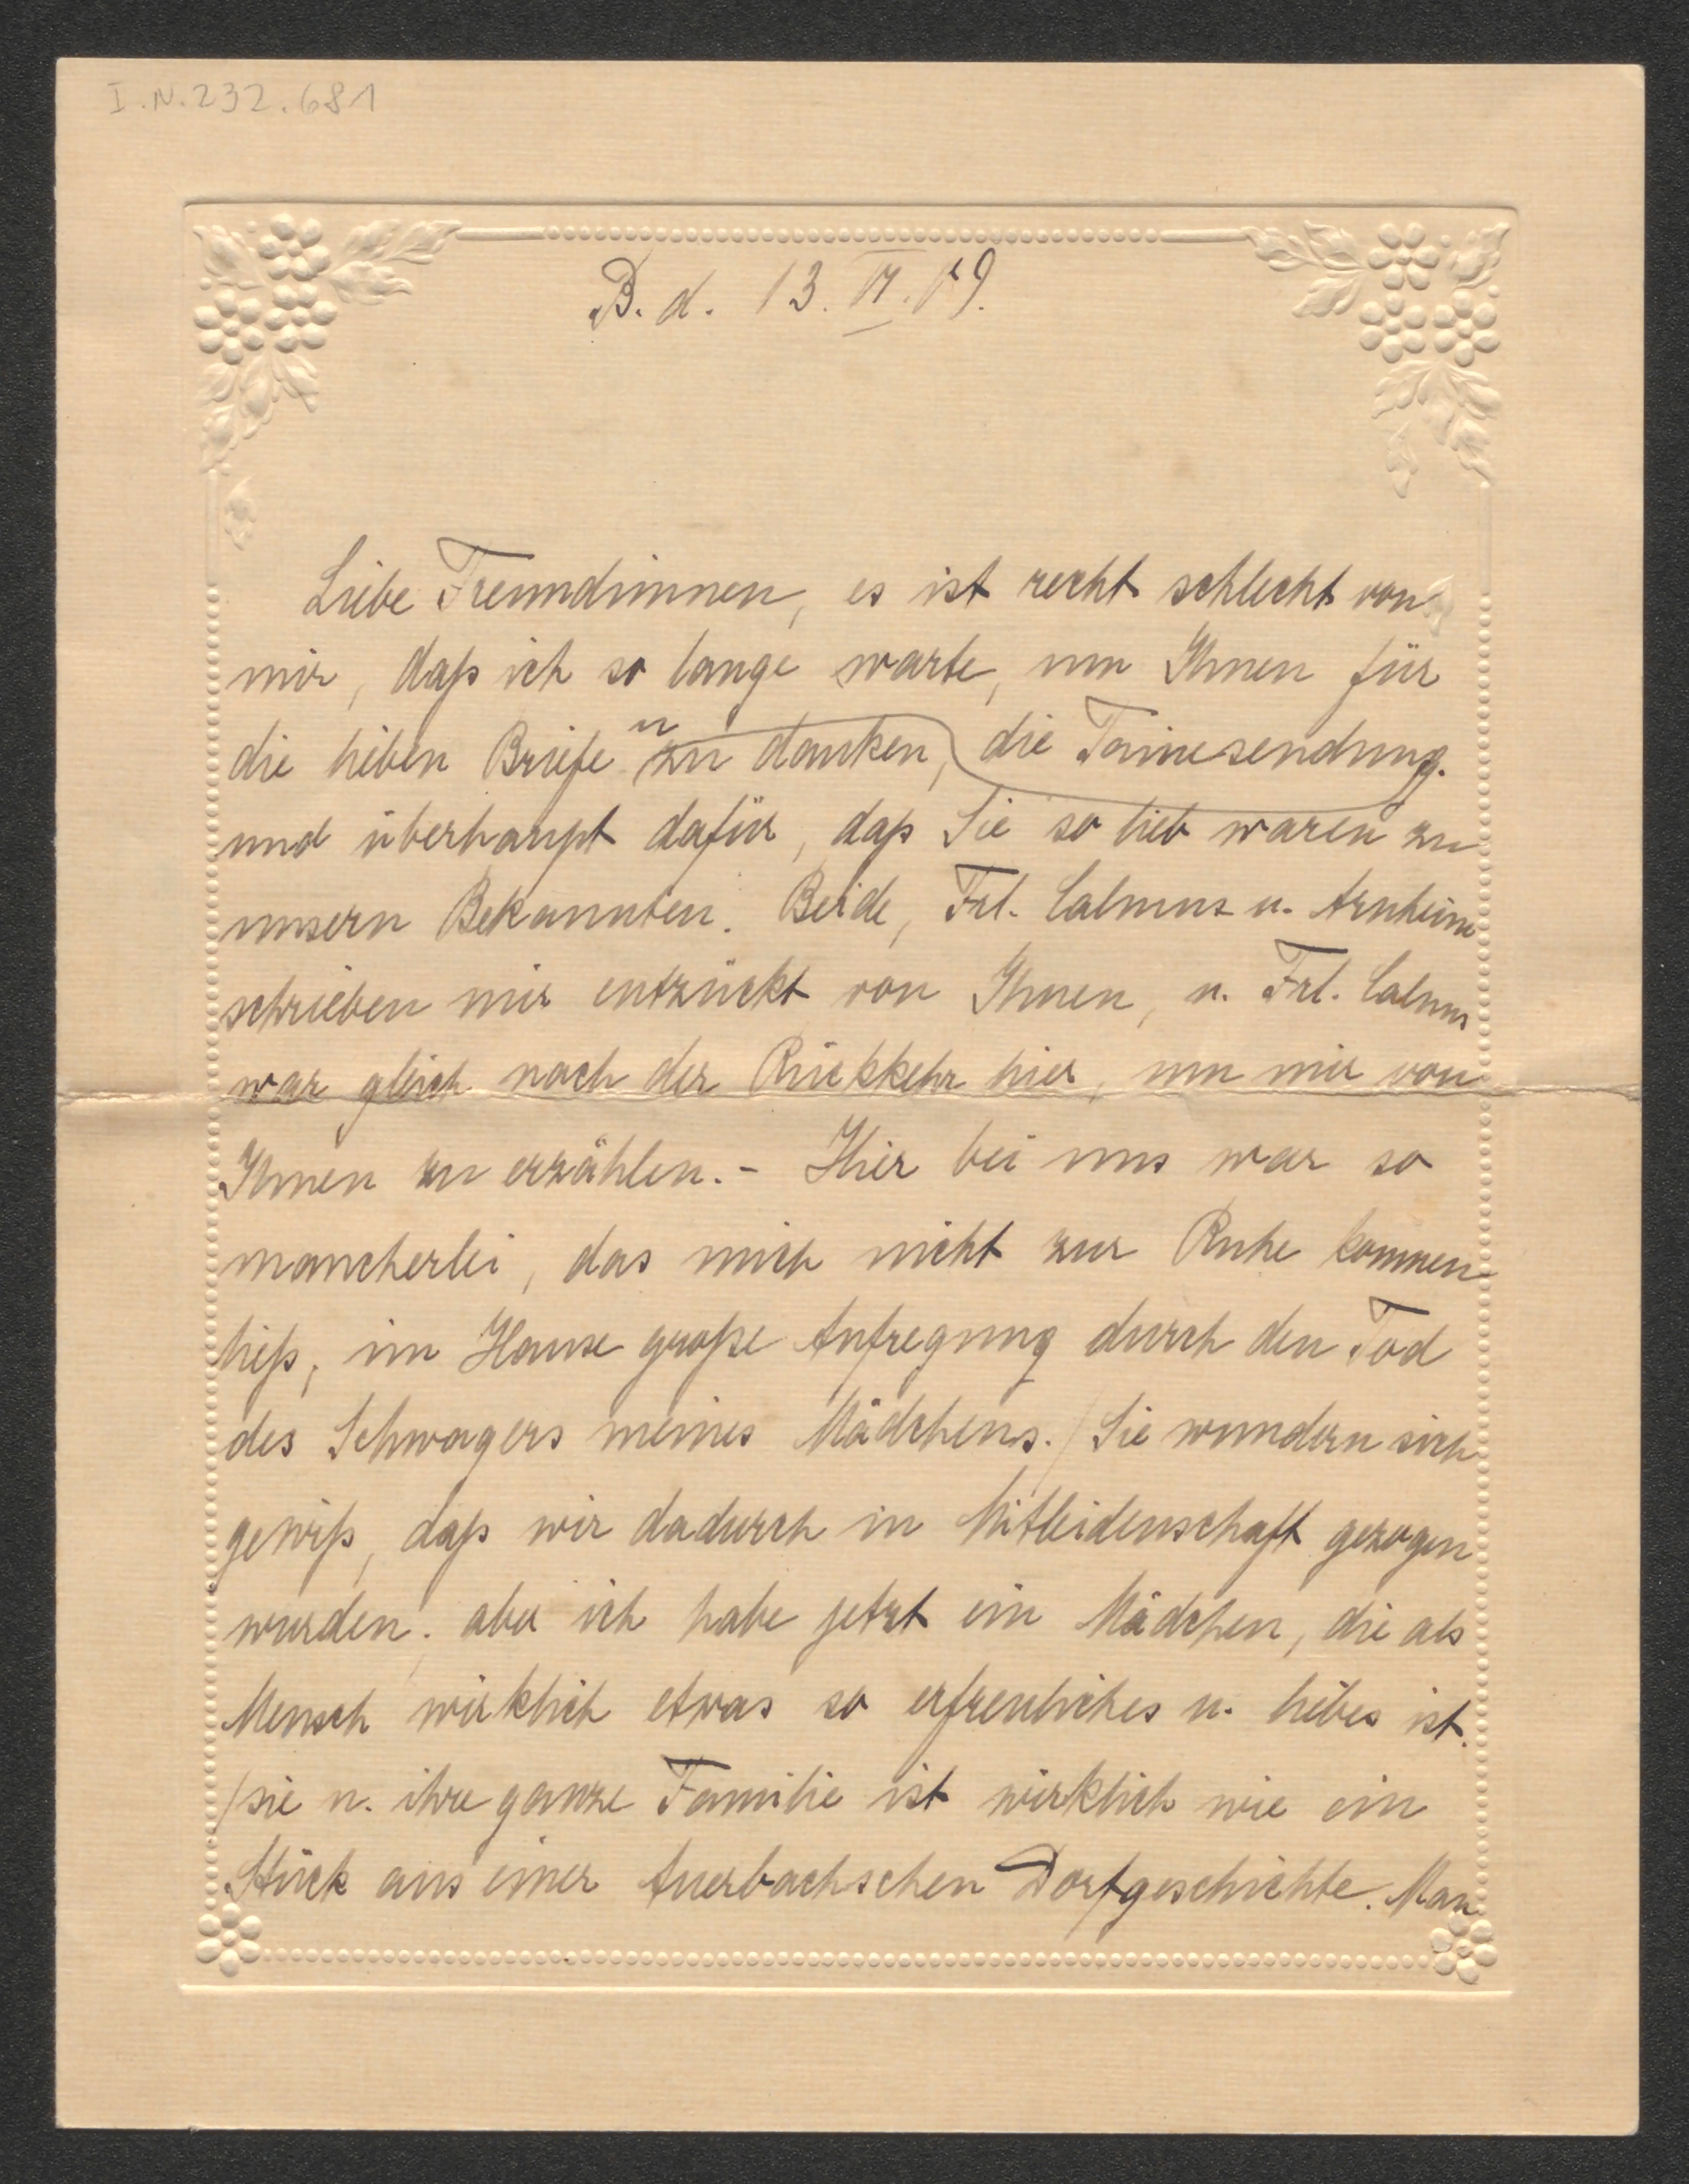 I.N. 232.681
B. d. 13. VI. 19.
Liebe Freundinnen, es ist recht schlecht von
mir, daß ich so lange warte, um Ihnen für
die lieben Briefe u zu danken, die Tainesendung.
und überhaupt dafür, daß Sie so lieb waren zu
unsern Bekannten. Beide, Frl. Calmus u. Arnheim
schrieben mir entzückt von Ihnen, u. Frl. Calmus
war gleich nach der Rückkehr hier, um mir von
Ihnen zu erzählen. – Hier bei uns war so
mancherlei, das mich nicht zur Ruhe kommen
ließ, im Hause große Aufregung durch den Tod
des Schwagers meines Mädchens. / Sie wundern sich
gewiß, daß wir dadurch in Mitleidenschaft gezogen
wurden, aber ich habe jetzt ein Mädchen, die als
Mensch wirklich etwas so erfreuliches u. liebes ist.
/ sie u. ihre ganze Familie ist wirklich wie ein
Stück aus einer Auerbachschen Dorfgeschichte. Man